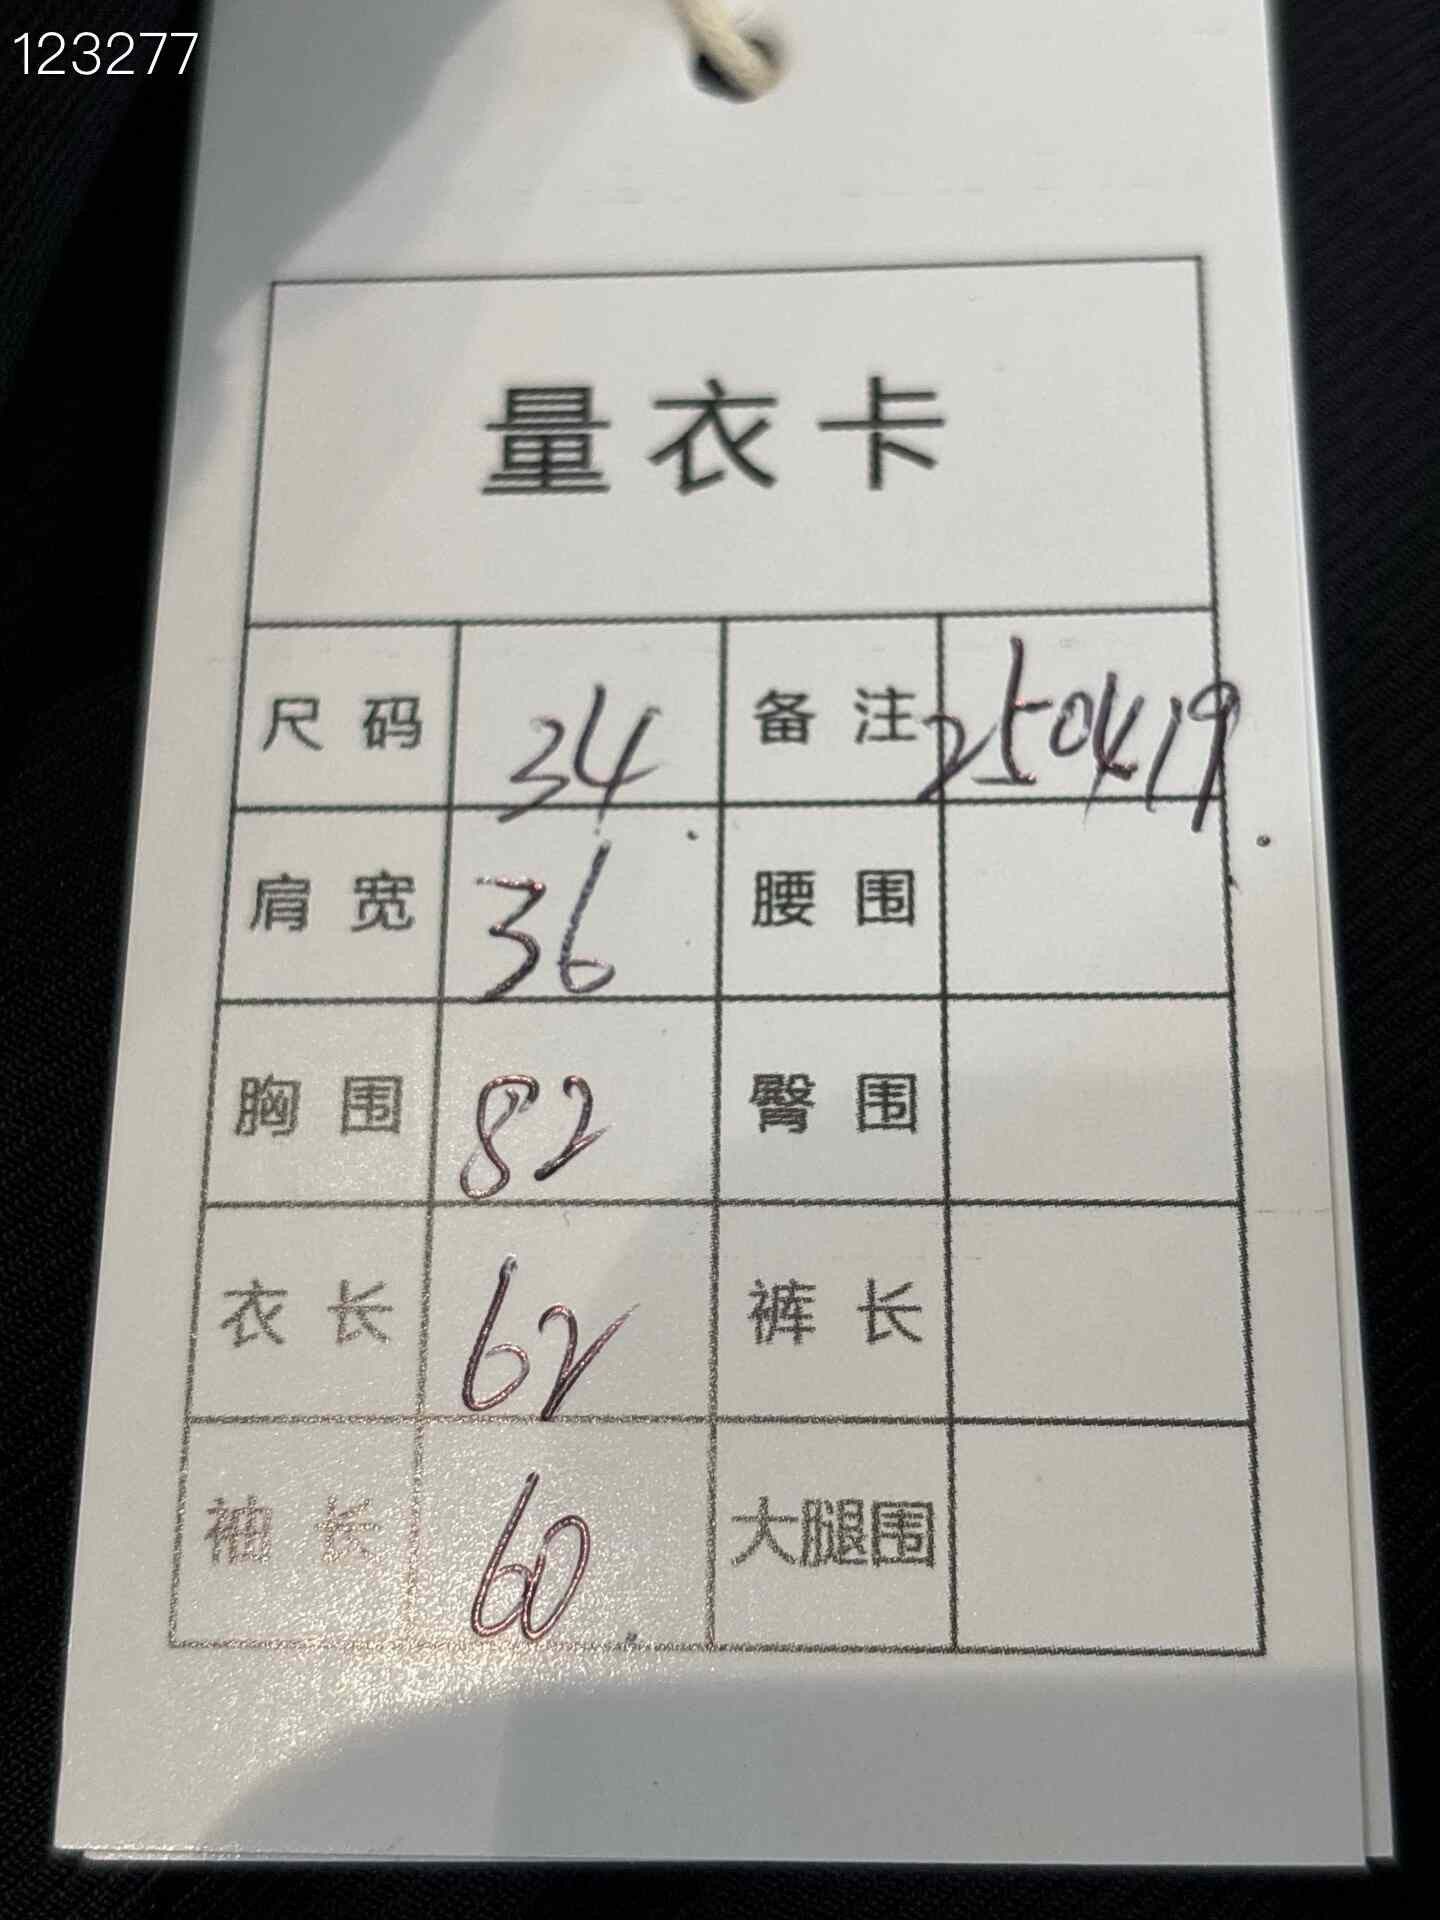 123277
量衣卡
尺码 34 备注 250419
肩宽 36 腰围
胸围 82 臀围
衣长 62 裤长
袖长 60 大腿围